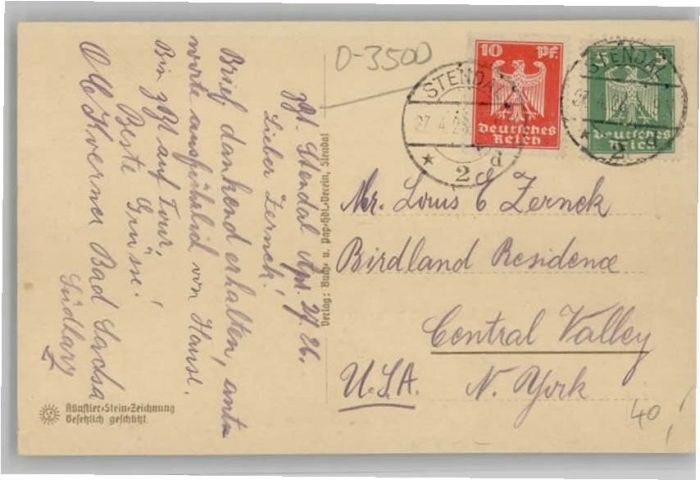 D-3500
10 Pf.
Deutsches
Reich
5
Deutsches
Reich
STENDAL
27.4.26
* 2 d
STENDAL
2
zzt. Stendal Apr. 27. 26.
Lieber Zernek!
Brief dankend erhalten, ant-
worte ausführlich von Hause.
Bin zzt auf Tour.
Beste Grüsse!
Bad Sachsa
Südharz
Verlag: Buch- u. Pap.-Hdl.-Verein, Stendal
Mr. Louis E Zerneck
Birdland Residence
Central Valley
U.S.A. N. York
40,
Künstler-Stein-Zeichnung
Gesetzlich geschützt.